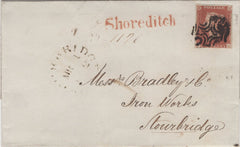 Shoreditch
Mess^rs Bradley & Co
Iron Works
Stourbridge